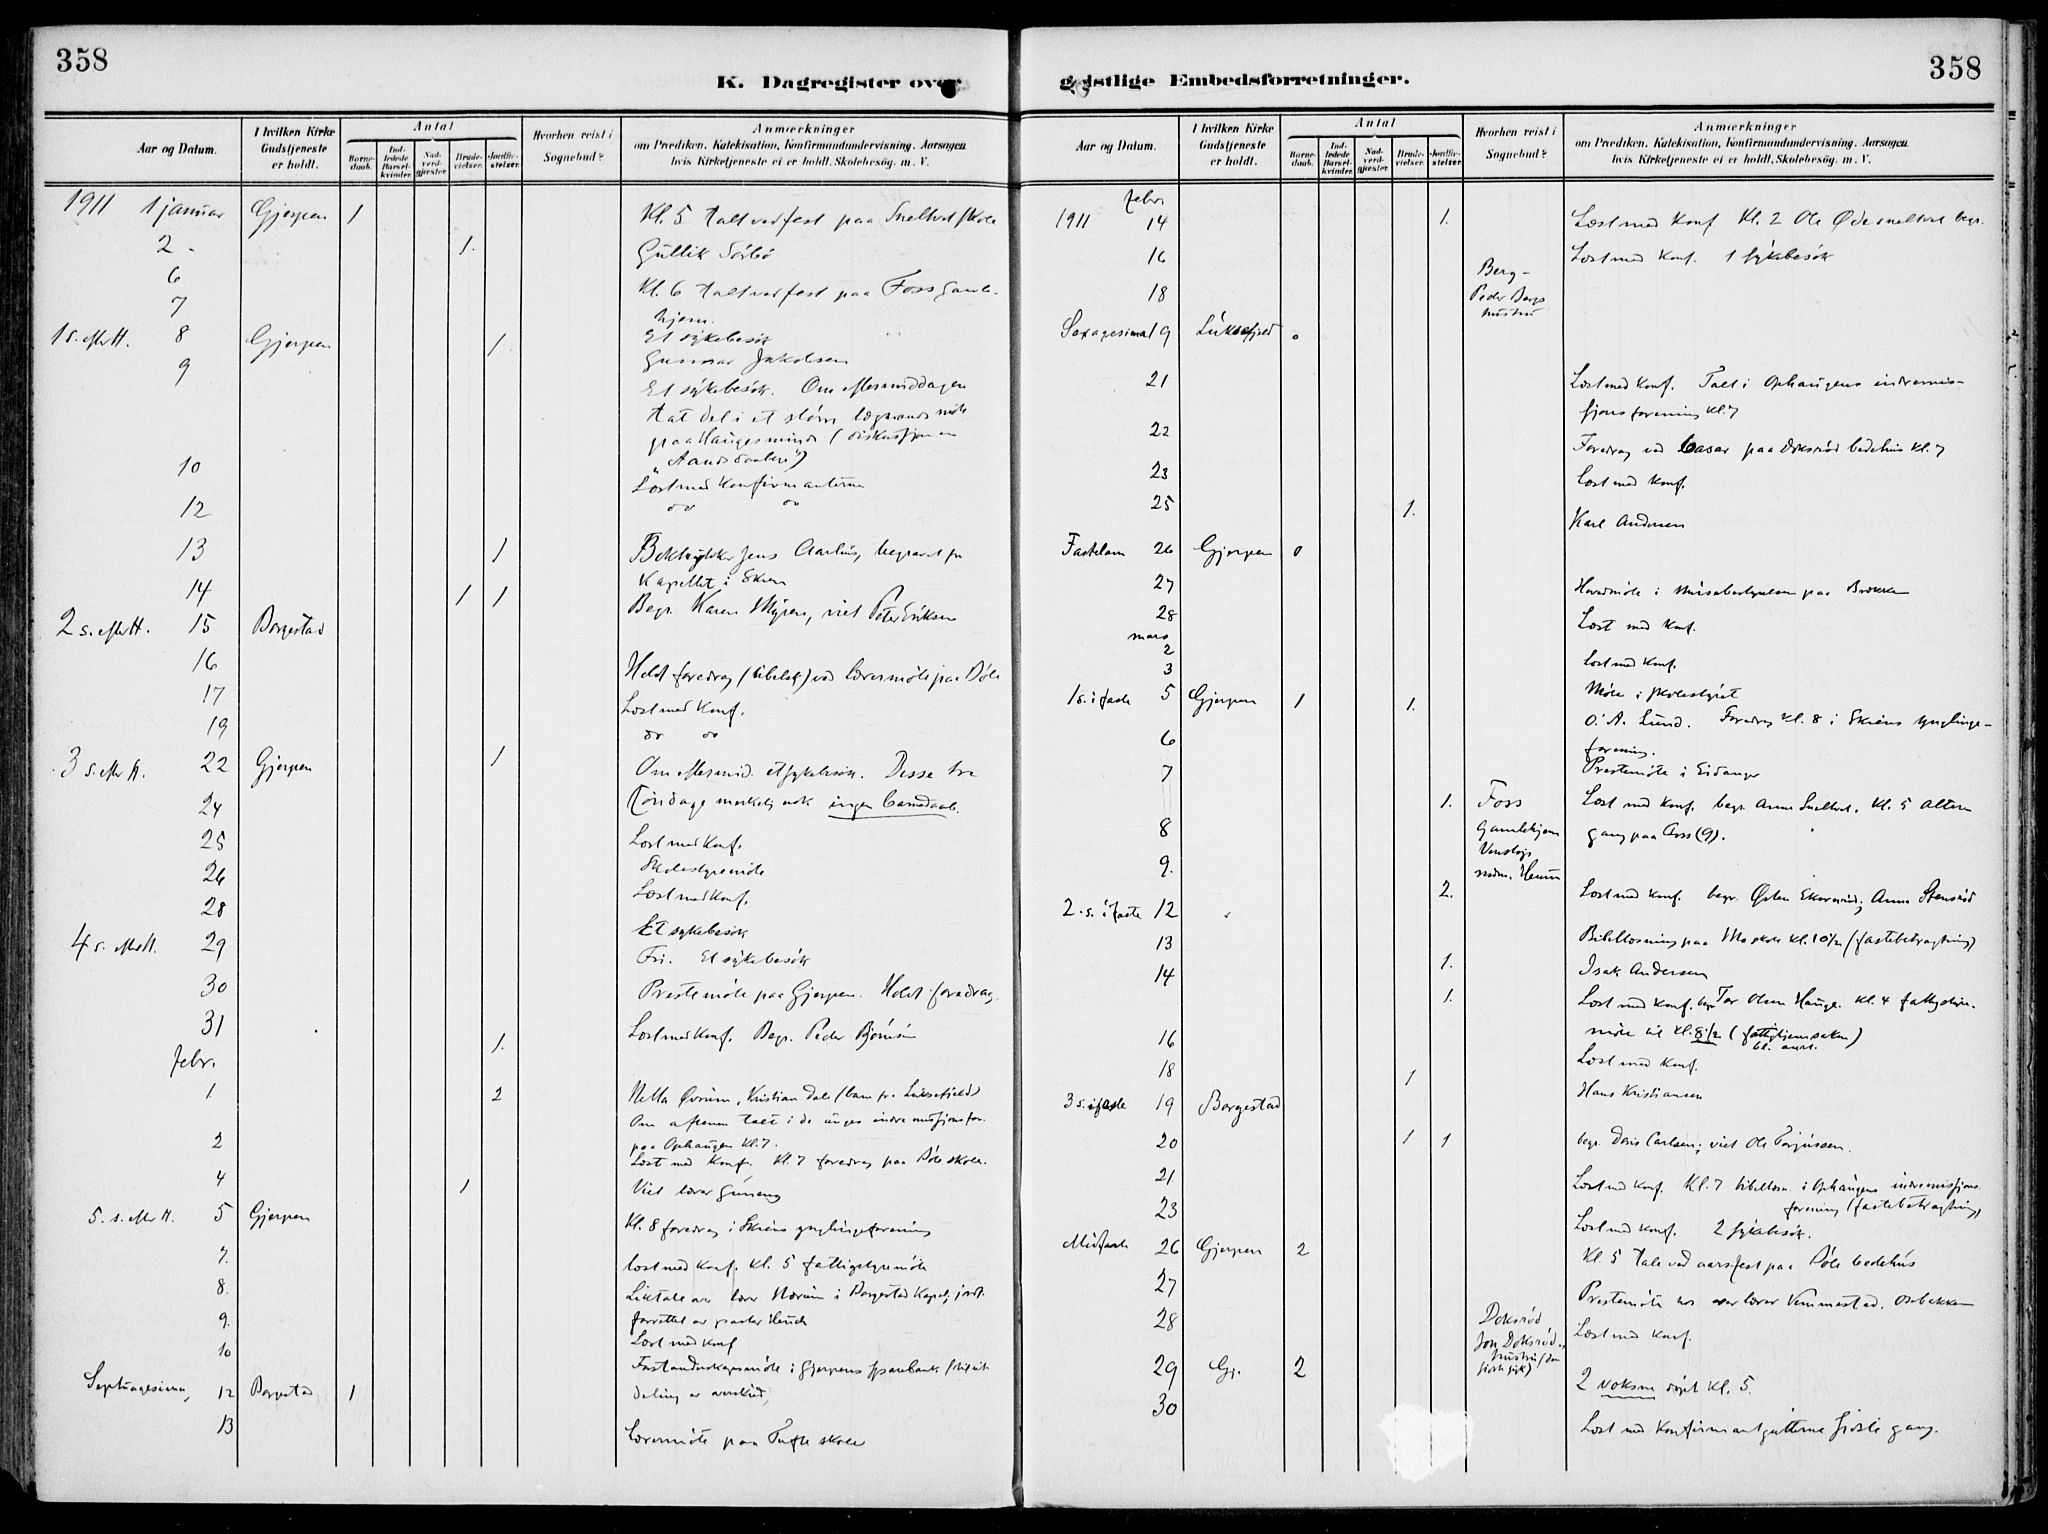 358
K. Dagregister over
Aar og Datum.
I hvilken Kirke Gudstjeneste er holdt.
Antal
Barne-daab.
Ind-ledede Barsel-kvinder.
Nad-verd-gjæster.
Brude-vielser.
Jordfæ-stelser.
Hvorhen reist i Sognebud?
Anmærkninger
om Prædiken. Katekisation, Konfirmandundervisning. Aarsagen
hvis Kirketjeneste ei er holdt. Skolebesøg. m. V.
1911 1 januar Gjerpen 1 Kl. 5 talt ved fest paa Sneltvet skole
2 - 1. Gullik Sørbø
6 Kl. 6 talt ved fest paa Foss gamle-
7 hjem.
1 s. efter H. 8 Gjerpen 1 Et sykebesøk
Gunnar Jakobsen
9 Et sykebesøk. Om eftermiddagen
tat del i et større lægmands møte
paa Haugesminde (diskussjonen
"Aandsdaaben")
10 Læst med konfirmanterne
12 do do
13 1 Boktrykker Jens Aarhus, begravet fra
kapellet i Skien
14 1 1 Begr. Karen Myren, viet Peter Eriksen
2 s. efter H. 15 Borgestad
16 Holdt foredrag (bibelsk) ved lærermøte paa Døle
17 Læst med konf.
19 do do
3 s. efter H. 22 Gjerpen 1 Om eftermid. et sykebesøk. Disse tre
søndage merkelig nok ingen barnedaab.
24 Læst med konf.
25 Skolestyremøte
26 Læst med konf.
28 Et sykebesøk
4 s. efter H. 29 Fri. Et sykebesøk
30 Prestemøte paa Gjerpen. Holdt foredrag.
31 1. Læst med konf. Begr. Peder Bjørnsen
febr.
1 2 Netta Ørum, Kristian Dale (barn fr. Luksefjeld)
Om aftenen talt i de unges indre missjonsfor.
paa Ophaugen kl. 7.
2 Læst med konf. Kl. 7 foredrag paa Døle skole.
4 1 Viet lærer
5. s. efter H. 5 Gjerpen Kl. 8 foredrag i Skiens ynglingeforening
7. Læst med konf. kl. 5 fattigstyremøte
8. Liktale over lærer Nærum i Borgestad kapel, jordf.
forrettet av pastor Heuch
9. Læst med konf
10 Forstanderskapsmøte i Gjerpens sparebank
deling av overskud)
Septuagesima, 12 Borgestad 1
13 Lærermøte paa Tufte skole
358
geistlige Embedsforretninger.
Aar og Datum.
I hvilken Kirke Gudstjeneste er holdt.
Antal
Barne-daab.
Ind-ledede Barsel-kvinder.
Nad-verd-gjæster.
Brude-vielser.
Jordfæ-stelser.
Hvorhen reist i Sognebud?
Anmærkninger
om Prædiken. Katekisation, Konfirmandundervisning. Aarsagen
hvis Kirketjeneste ei er holdt. Skolebesøg. m. V.
febr.
1911 14 1. Læst med konf. Kl. 2 Ole Ødesneltvet begr.
16 Læst med konf. 1 sykebesøk
18 Berg - Peder Bergs hustru
Sexagesima 19 Luksefjeld 0
21 Læst med konf. Talt i Ophaugens indremis-
sjonsforening kl. 7
22 Foredrag ved basar paa Doksrød bedehus kl. 7
23 Læst med konf.
25 1. Karl Andersen
Fastelavn 26 Gjerpen 0
27 Hovedmøte i paa Brekke
28 Læst med konf.
mars
2 Læst med konf.
3 Møte i skolestyret
1 s. i faste 5 Gjerpen 1 1. O. A. Lund. Foredrag kl. 8 i Skiens ynglinge-
forening.
6 Prestemøte i Eidanger
7 1. Foss Gamlehjem Læst med konf. begr. Anne Sneltvet. Kl. 5 alter-
gang paa Foss (9).
8
9. 2. Læst med konf. begr. Anne Stensrød
2. s. i faste 12 "
13 Bibellæsning paa Mo skole kl. 10½ (fastebetragtning)
1. Isak Andersen
14 1. Læst med konf. begr. Tor Olsen Hauge. Kl. 4 fattigstyre-
møte til kl. 8½ (fattighjemsaken) bl. annet.
16 Læst med konf.
18 1 Hans Kristiansen
3 s. i faste 19 Borgestad
20 1 1 begr. Doris Carlsen; viet Ole Torjussen.
21. Læst med konf. Kl. 7 bibellæsn. i Ophaugens indremissjons-
forening (fastebetragtning)
23 Læst med konf. 2 sykebesøk.
Midfaste 26 Gjerpen 2 Kl. 5 tale ved aarsfest paa Døle bedehus
27 Prestemøte hos overlærer Vemmestad. Osebakken
28 Doksrød Jon Doksrød, hustru Læst med konf.
29 Gj. 2 2 voksne døpt kl. 5.
30 Læst med konfirmantguttene sidste gang.